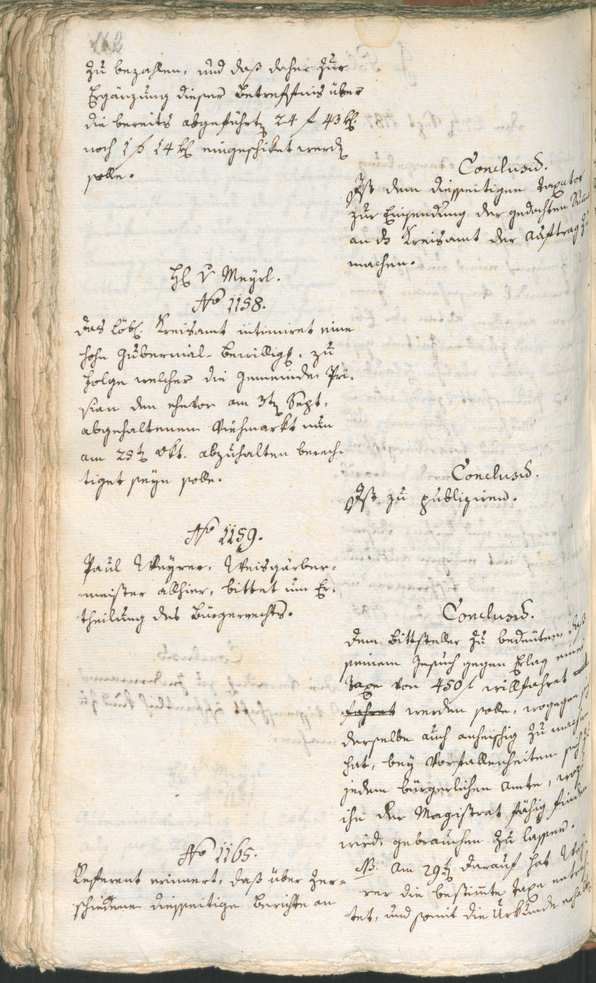 112
zu bezahlen, und daß daher zur
Ergänzung dieser Betreffnis über
die bereits abgeführte 24 f 43 k
noch 1 f 14 k eingeschiket werde
solle.
Conclusum.
Ist dem diesseitigen Taxator
zur Einsendung der gedachten
an das Kreisamt der Auftrag zu
machen.
H v Meyrl.
No 1158.
Das Löbl. Kreisamt intimiret eine
hohe Gubernial-Bewilligg, zu
Folge welcher die Gemeinde Pri-
sian den ehevor am 3t Sept.
abgehaltenen Viehmarkt nun
am 25t Okt. abzuhalten berech-
tiget seyn solle.
Conclusum.
Ist zu publiziren.
No 1159.
Paul Weyrer, Weisgärber-
meister allhier, bittet um Er-
theilung des Bürgerrechts.
Conclusum.
Dem Bittsteller zu bedeuten, daß
seinem Gesuch gegen Erlag einer
Taxe von 450 f willfahret
fahret werden solle, wogegen
derselbe auch anheischig zu machen
hat, bey Vorfallenheiten sich zu
jedem bürgerlichen Amte, wozu
ihn der Magistrat fähig finden
wird, gebrauchen zu lassen.
NB. Am 29t darauf hat Wey-
rer die bestimte Taxe entrich-
tet, und somit die Urkunde
No 1165.
Referent erinnert, daß über ver-
schiedene diesseitige Berichte an